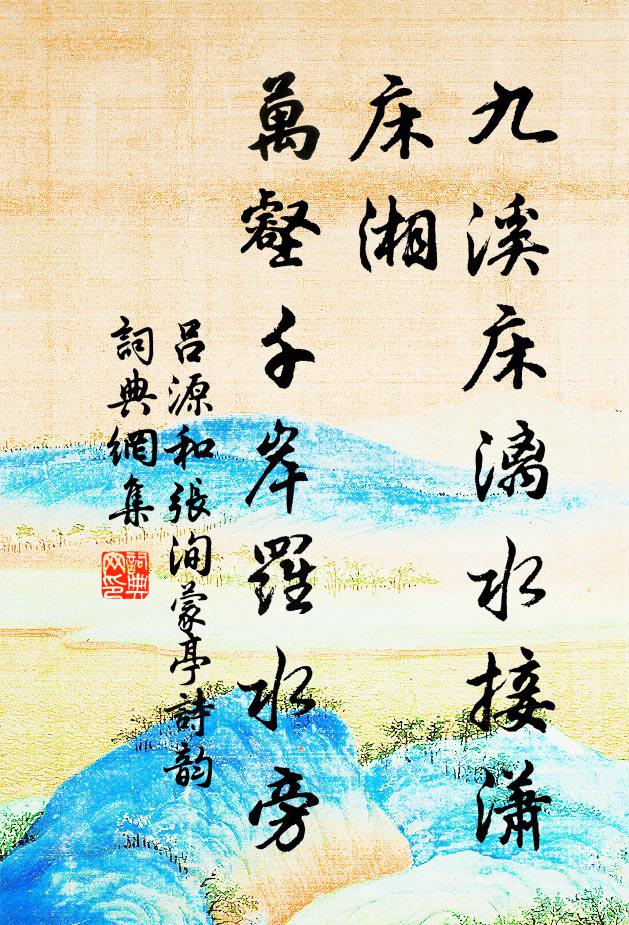 九溪床漓水接瀟
床湘
萬壑千岸羅水旁
呂源和張洵蒙亭詩韵
詞典網集
詞典
网印